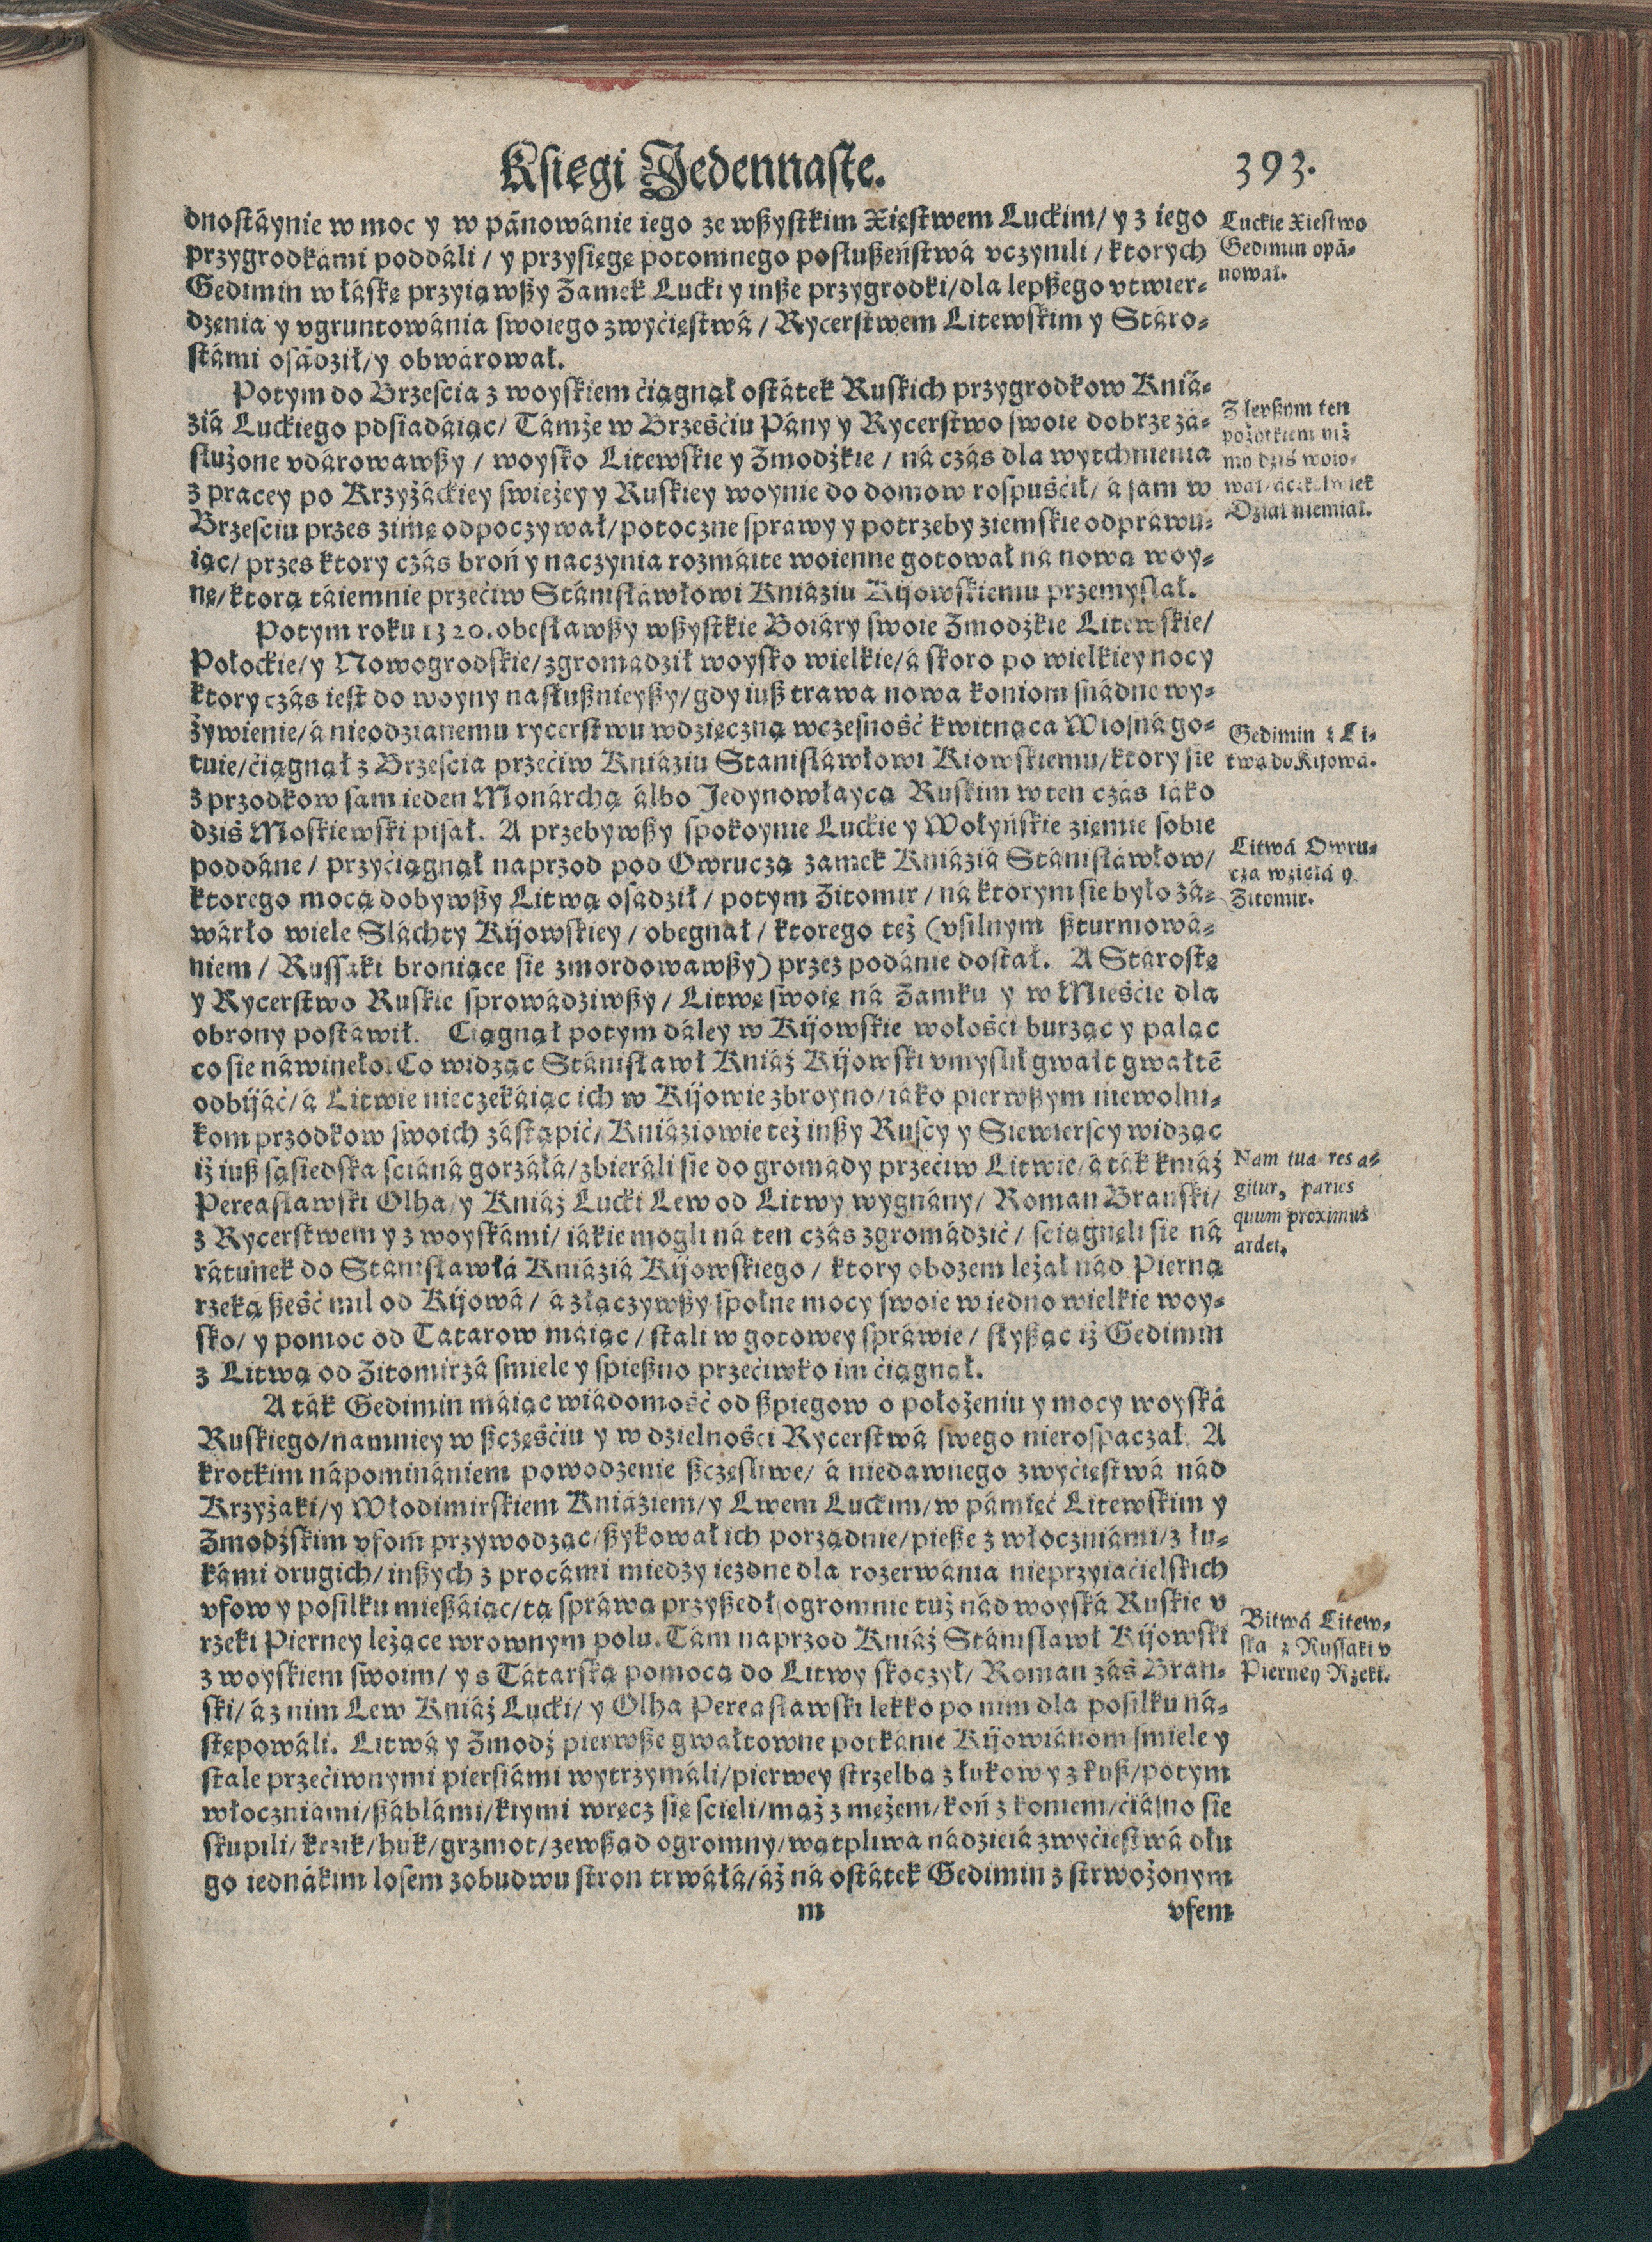 Księgi Jedennaste.
393.
dnostáynie w moc y w pánowánie iego ze wßystkim Xięstwem Luckim/ y z iego
przygrodkámi poddáli / y przysięgę potomnego poslußeństwá vczynili / ktorych
Gedimin w łáskę przyiąwßy Zamek Lucki y inße przygrodki/ dla lepßego vtwier-
dzenia y vgruntowánia swoiego zwyćięstwá / Rycerstwem Litewskim y Stáro-
stámi osádził/ y obwárował.
Luckie Xiestwo
Gedimin opá-
nował.
Potym do Brzescia z woyskiem ćiągnął ostátek Ruskich przygrodkow Kniá-
ziá Luckiego posiadáiąc/ Támże w Brześćiu Pány y Rycerstwo swoie dobrze zá-
służone vdárowawßy / woysko Litewskie y Zmodżkie / ná czás dla wytchnienia
z pracey po Krzyżáckiey swieżey y Ruskiey woynie do domow rospuśćił/ á sam w
Brzesciu przes zimę odpoczywał/ potoczne spráwy y potrzeby ziemskie odpráwu-
iąc/ przes ktory czás broń y naczynia rozmáite woienne gotował na nową woy-
nę/ ktorą táiemnie przećiw Stánisławłowi Kniáziu Kijowskiemu przemyslał.
Z lepßym ten
pożytkiem niż
my dziś woio-
wał/ áczkolwiek
Dział niemiał.
Potym roku 1320. obesławßy wßystkie Boiáry swoie Zmodżkie Litewskie/
Połockie/ y Nowogrodskie/ zgromadził woysko wielkie/ á skoro po wielkiey nocy
ktory czás iest do woyny nasłußnieyßy/ gdy iuß trawa nowa koniom snádne wy-
żywienie/ á nieodzianemu rycerstwu wdzięczną wczesność kwitnąca Wiosná go-
tuie/ ćiągnął z Brzescia przećiw Kniáziu Stanisłáwłowi Kiowskiemu/ ktory sie
z przodkow sam ieden Monárchą álbo Jedynowłaycą Ruskim w ten czás iáko
dziś Moskiewski pisał. A przebywßy spokoynie Luckie y Wołyńskie ziemie sobie
poddáne / przyćiągnął naprzod pod Owruczą zamek Kniáziá Stánisławłow/
ktorego mocą dobywßy Litwą osádził / potym Zitomir / ná ktorym sie było zá-
wárło wiele Sláchty Kijowskiey / obegnał / ktorego też (vsilnym ßturmowá-
niem / Russaki broniące sie zmordowawßy) przez podánie dostał. A Stárostę
y Rycerstwo Ruskie sprowádziwßy / Litwę swoię ná Zamku y w Mieśćie dla
obrony postáwił. Ciągnął potym dáley w Kijowskie wołośći burząc y paląc
co sie náwineło. Co widząc Stánisławł Kniáż Kijowski vmyslił gwałt gwałtē
odbijáć/ á Litwie nieczekáiąc ich w Kijowie zbroyno/ iáko pierwßym niewolni-
kom przodkow swoich zástąpić/ Kniáziowie też inßy Ruscy y Siewierscy widząc
iż iuß sąsiedska sćiáná gorzáłá/ zbieráli sie do gromády przećiw Litwie/ á ták kniáż
Pereasławski Olha/ y Kniáż Lucki Lew od Litwy wygnány/ Roman Branski/
z Rycerstwem y z woyskámi/ iákie mogli ná ten czás zgromádzić / sciągnęli sie ná
rátunek do Stanisławłá Kniáziá Kijowskiego / ktory obozem leżał nád Pierną
rzeką ßeść mil od Kijowá / á złączywßy społne mocy swoie w iedno wielkie woy-
sko/ y pomoc od Tatarow máiąc / stali w gotowey spráwie / slyßąc iż Gedimin
z Litwą od Zitomirzá smiele y spießno przećiwko im ćiągnął.
Gedimin z Li-
twą do Kijowá.
Litwá Owru-
czá wzięłá y
Zitomir.
Nam tua res a-
gitur, paries
quum proximus
ardet,
A ták Gedimin máiąc wiádomość od ßpiegow o położeniu y mocy woyská
Ruskiego/ namniey w ßczęśćiu y w dzielnośći Rycerstwá swego nierospaczał. A
krotkim nápominániem powodzenie ßczęsliwe/ á niedawnego zwyćięstwá nád
Krzyżaki/ y Włodimirskiem Kniáziem/ y Lwem Luckim/ w pámięć Litewskim y
Zmodżskim vfom przywodząc/ ßykował ich porządnie/ pieße z włoczniámi/ z łu-
kámi drugich/ inßych z procámi miedzy iezdne dla rozerwánia nieprzyiaćielskich
vfow y posilku mießáiąc/ tą spráwą przyßedł ogromnie tuż nád woyská Ruskie v
rzeki Pierney leżące w rownym polu. Tám naprzod Kniáż Stánisławł Kijowski
z woyskiem swoim/ y s Tátarską pomocą do Litwy skoczył/ Roman záś Bran-
ski/ á z nim Lew Kniáż Lucki/ y Olha Pereasławski lekko po nim dla posilku ná-
stępowáli. Litwá y Zmodź pierwße gwałtowne potkánie Kijowiánom smiele y
stale przećiwnymi piersiámi wytrzymáli/ pierwey strzelbą z łukow y z kuß/ potym
włoczniámi/ ßáblámi/ kiymi wręcz się scięli/ mąż z mężem/ koń z koniem/ ćiásno sie
skupili/ krzik/ huk/ grzmot/ zewßąd ogromny/ wątpliwa nádzieiá zwyćiestwá dłu
go iednákim losem z obudwu stron trwáłá/ áż ná ostátek Gedimin z strwożonym
Bitwá Litew-
ska z Russaki v
Pierney Rzeki.
m
vfem